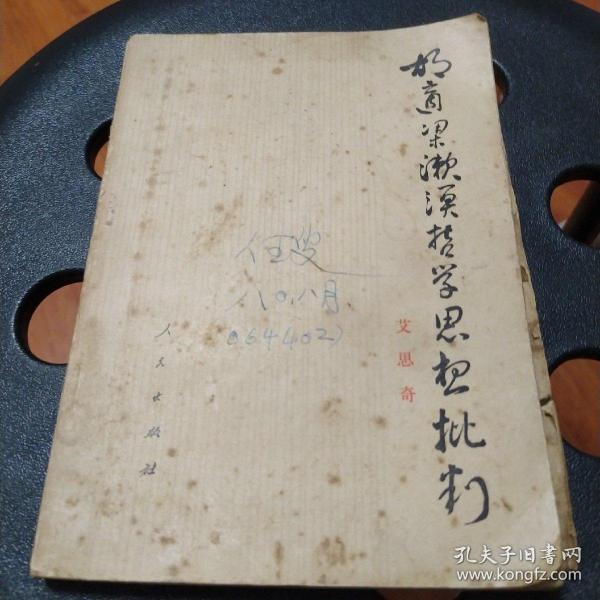 胡適梁漱溟哲学思想批判
艾思奇
任叟
八〇.八月
064(402)
人民出版社
孔夫子旧书网
www.kongfz.com